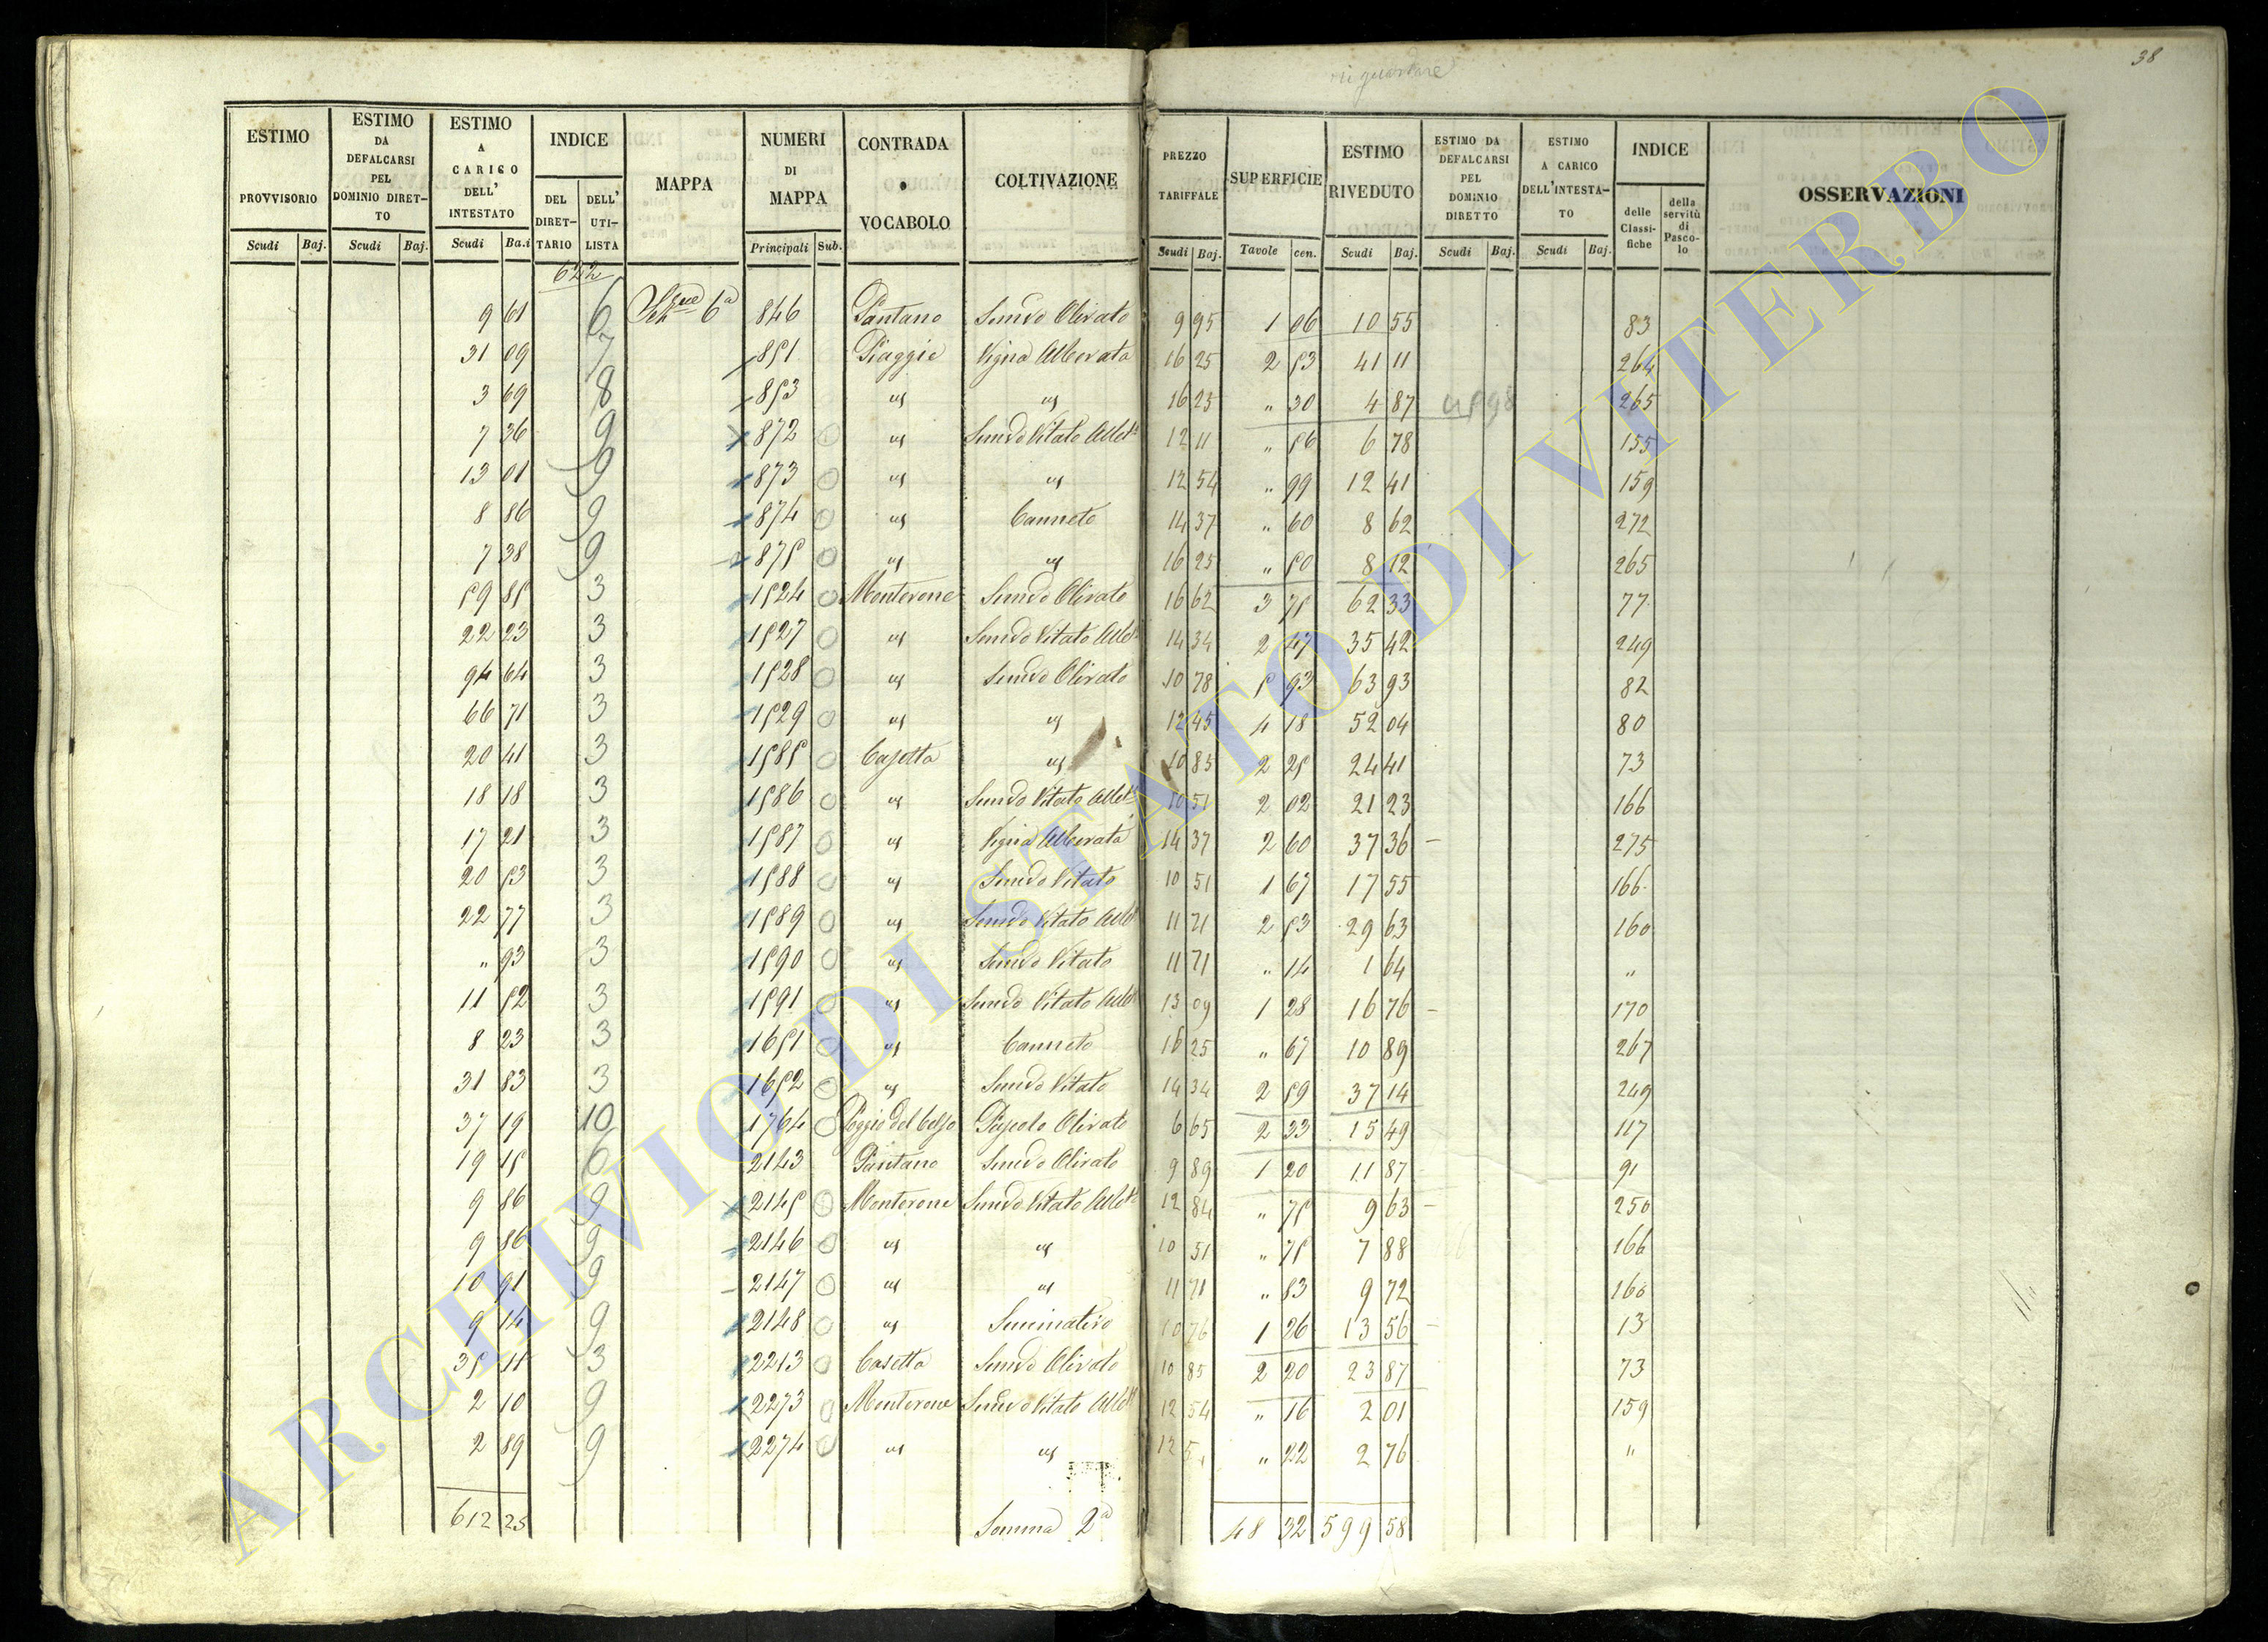 38
ESTIMO PROVVISORIO Scudi Baj.
ESTIMO DA DEFALCARSI PEL DOMINIO DIRET-TO Scudi Baj.
ESTIMO A CARICO DELL' INTESTATO Scudi Ba.i
INDICE DEL DIRET-TARIO DELL' UTI-LISTA
MAPPA
NUMERI DI MAPPA Principali Sub.
CONTRADA o VOCABOLO
COLTIVAZIONE
PREZZO TARIFFALE Scudi Baj.
SUPERFICIE Tavole cen.
ESTIMO RIVEDUTO Scudi Baj.
ESTIMO DA DEFALCARSI PEL DOMINIO DIRETTO Scudi Baj.
ESTIMO A CARICO DELL'INTESTA-TO Scudi Baj.
INDICE delle Classi-fiche della servitù di Pasco-lo
OSSERVAZIONI
622
9 61 6 Sez.ne 6a 846 Pantano Semvo Olivato 9 95 1 06 10 55 83
31 09 7 851 Piaggie Vigna Alberata 16 25 2 53 41 11 264
3 69 8 853 " " 16 25 " 30 4 87 265
7 36 9 872 " Semvo Vitato Albto 12 11 " 56 6 78 155
13 01 9 873 " " 12 54 " 99 12 41 159
8 86 9 874 " Canneto 14 37 " 60 8 62 272
7 38 9 875 " " 16 25 " 50 8 12 265
59 85 3 1524 Monterone Semvo Olivato 16 62 3 75 62 33 77
22 23 3 1527 " Semvo Vitato Albto 14 34 2 47 35 42 249
94 64 3 1528 " Semvo Olivato 10 78 5 93 63 93 82
66 71 3 1529 " " 12 45 4 18 52 04 80
20 41 3 1585 Casetta " 10 85 2 25 24 41 73
18 18 3 1586 " Semvo Vitato Albto 10 51 2 02 21 23 166
17 21 3 1587 " Vigna Alberata 14 37 2 60 37 36 275
20 53 3 1588 " Semvo Vitato 10 51 1 67 17 55 166
22 77 3 1589 " Semvo Vitato Albto 11 71 2 53 29 63 160
" 93 3 1590 " Semvo Vitato 11 71 " 14 1 64 "
11 52 3 1591 " Semvo Vitato Albto 13 09 1 28 16 76 170
8 23 3 1651 " Canneto 16 25 " 67 10 89 267
31 83 3 1652 " Semvo Vitato 14 34 2 59 37 14 249
37 19 10 1764 Poggio del Celso Pascolo Olivato 6 65 2 33 15 49 117
19 15 6 2143 Pantano Semvo Olivato 9 89 1 20 11 87 91
9 86 9 2145 Monterone Semvo Vitato Albto 12 84 " 75 9 63 250
9 86 9 2146 " " 10 51 " 75 7 88 166
10 91 9 2147 " " 11 71 " 83 9 72 160
9 14 9 2148 " Seminativo 10 76 1 26 13 56 13
35 11 3 2213 Casetta Semvo Olivato 10 85 2 20 23 87 73
2 10 9 2273 Monterone Semvo Vitato Albto 12 54 " 16 2 01 159
2 89 9 2274 " " 12 5 " 22 2 76 "
612 25 Somma 2a 48 32 599 58
ARCHIVIO DI STATO DI VITERBO